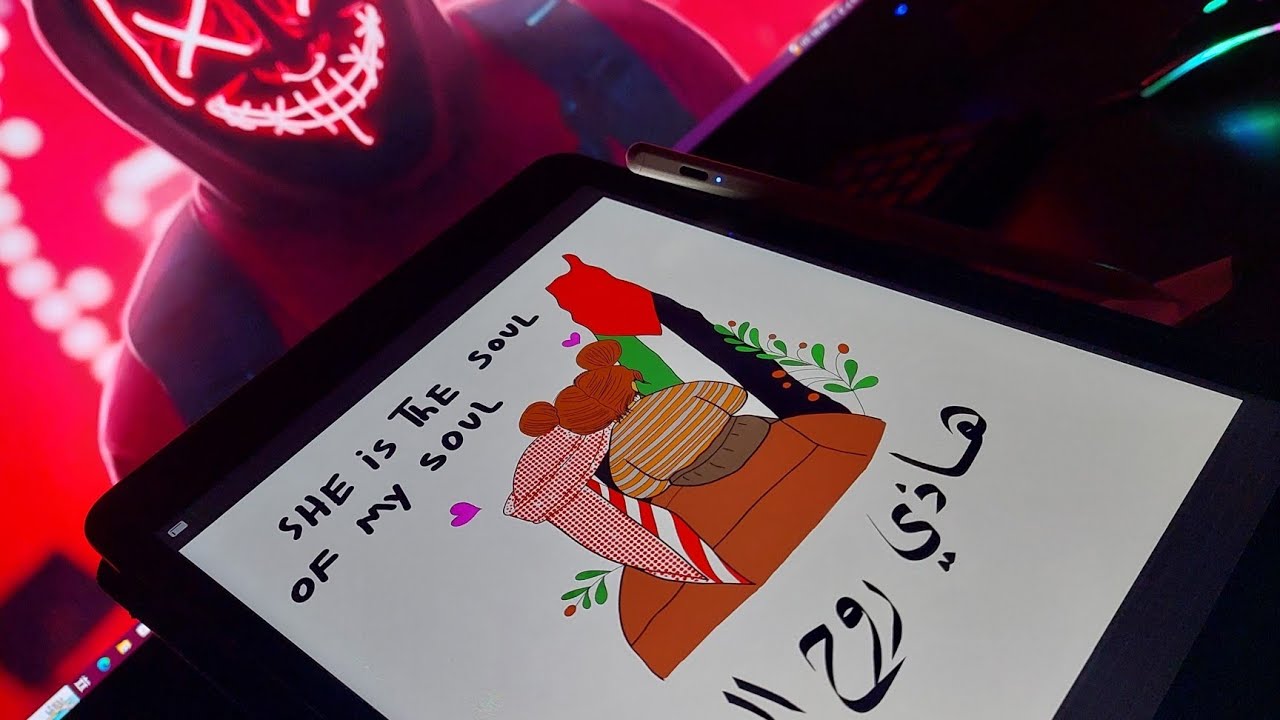 SHE is The SOUL
OF My SOUL
هاذي
روح